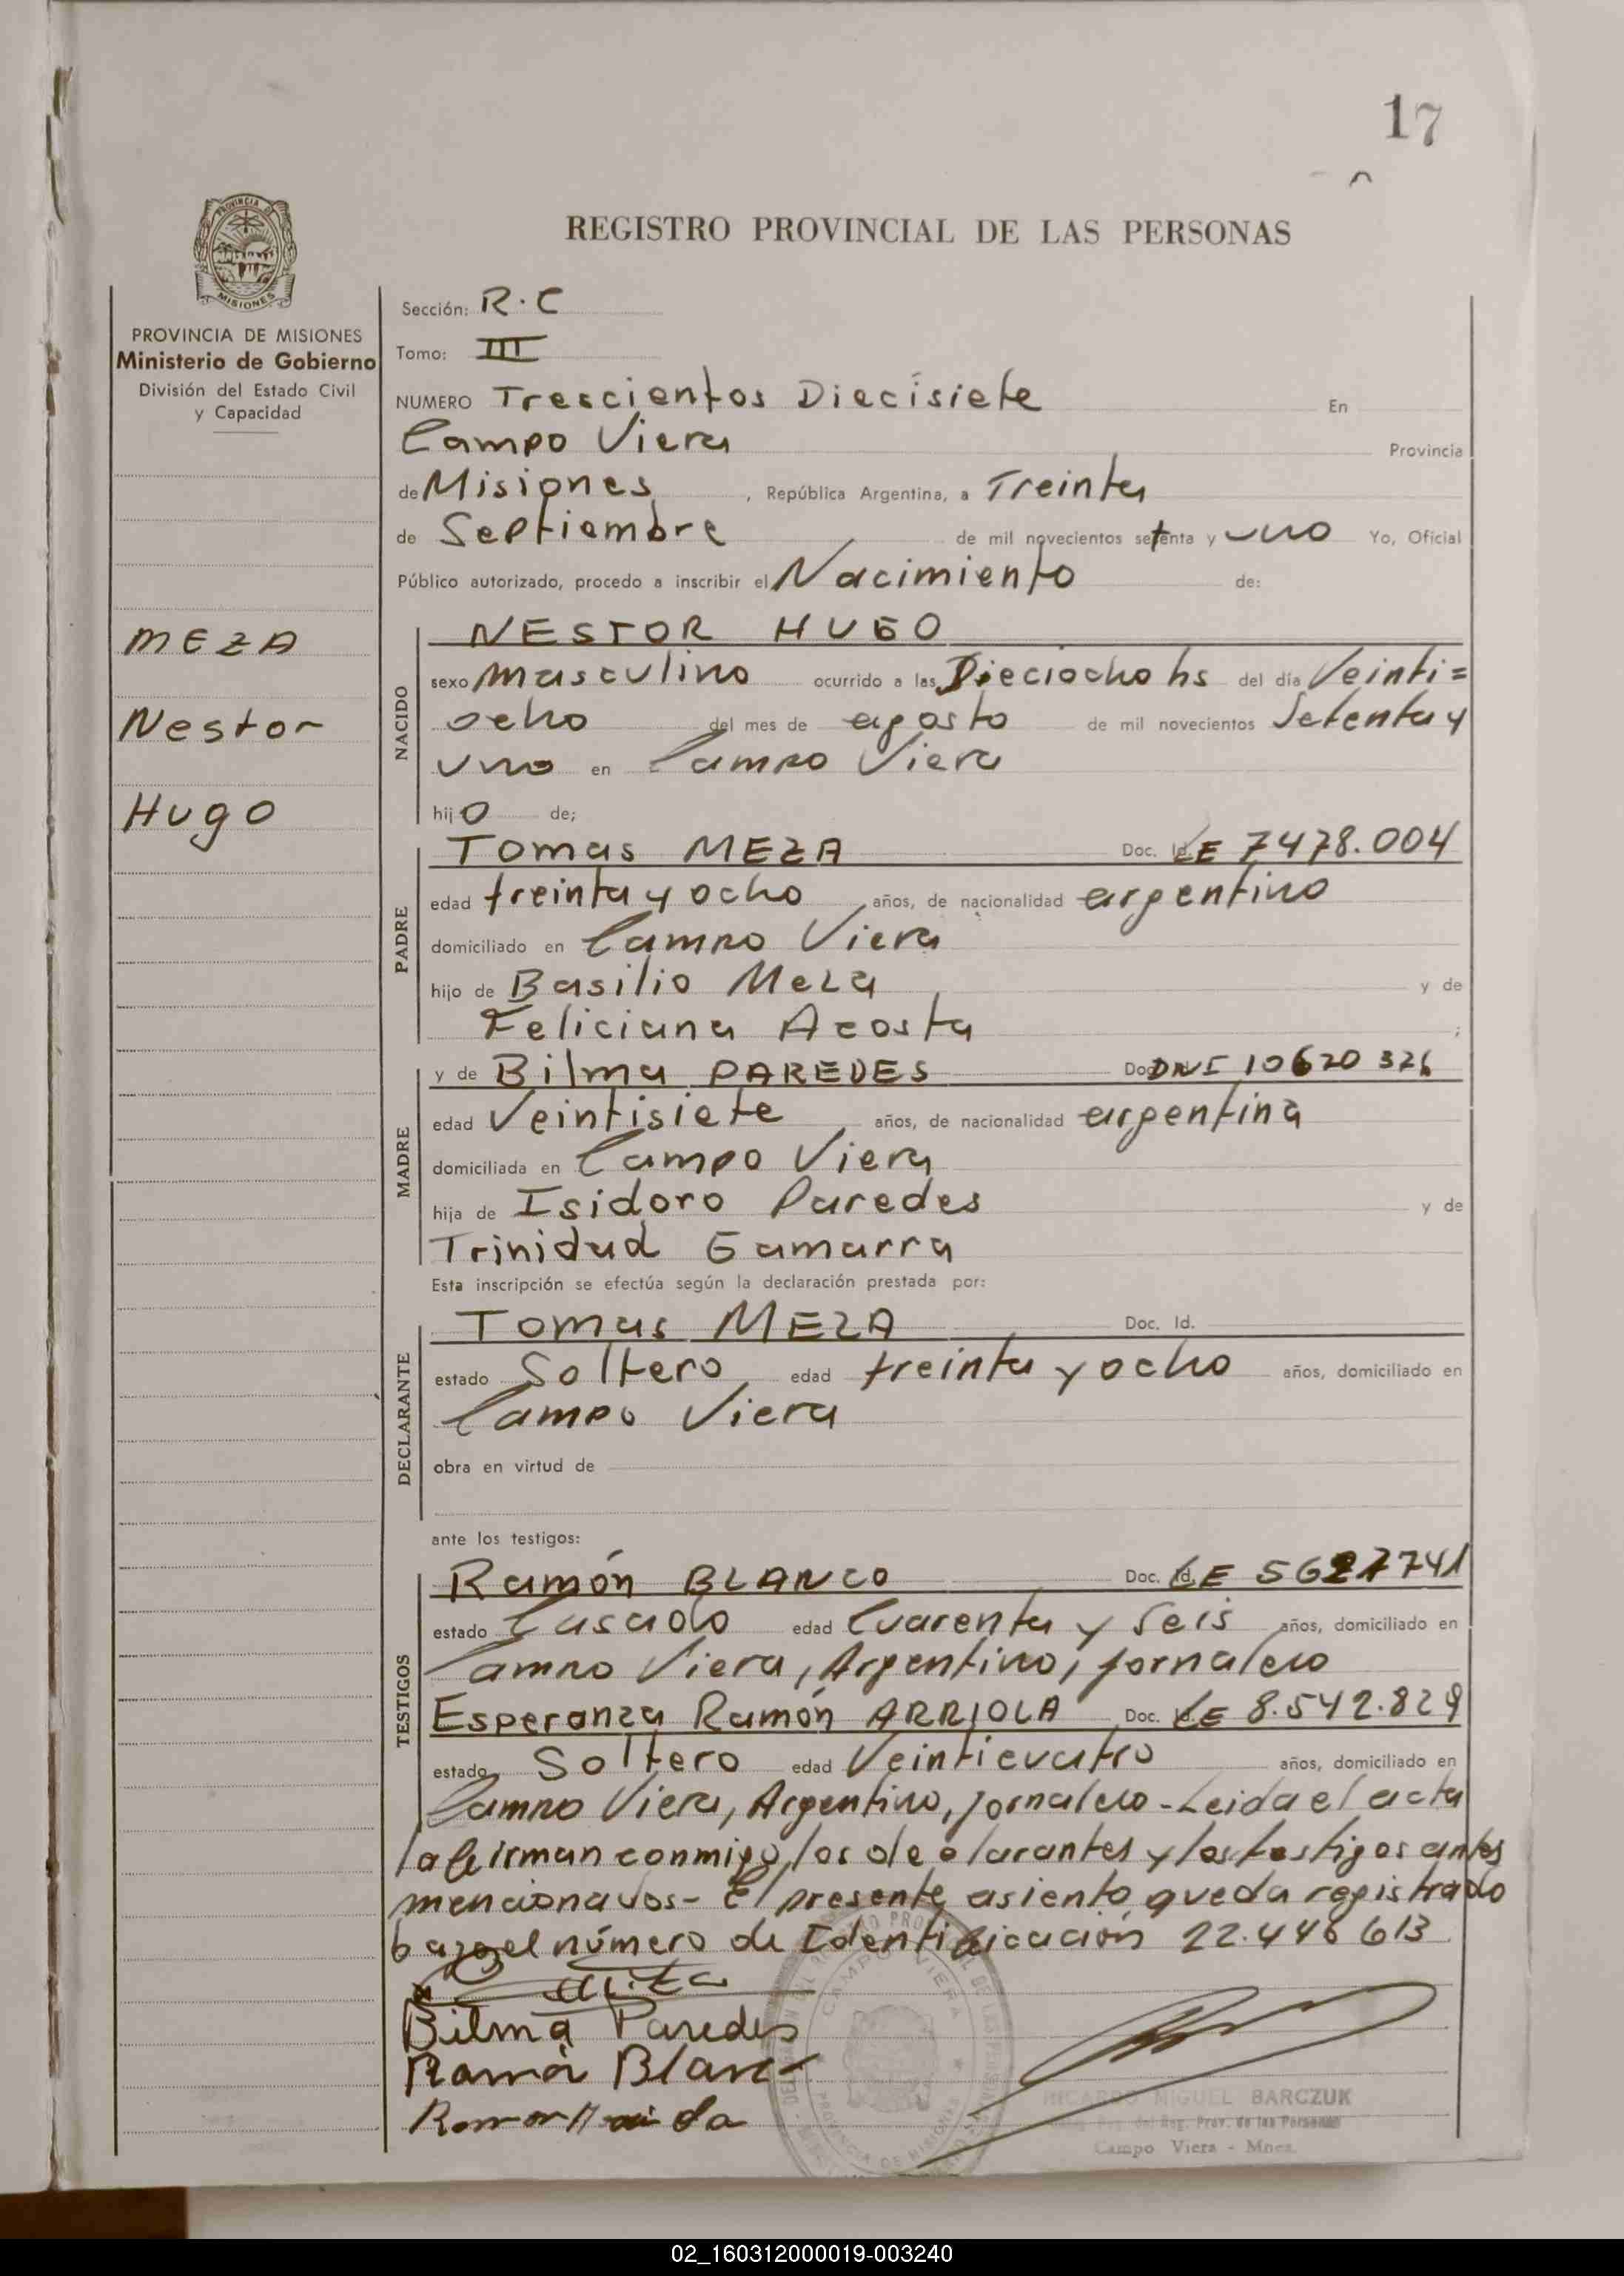 17
REGISTRO PROVINCIAL DE LAS PERSONAS
PROVINCIA DE
MISIONES
PROVINCIA DE MISIONES
Ministerio de Gobierno
División del Estado Civil
y Capacidad
MEZA
Nestor
Hugo
Sección: R.C
Tomo: III
NUMERO Trescientos Diecisiete En
Campo Viera Provincia
de Misiones, República Argentina, a Treinta
de Septiembre de mil novecientos setenta y uno Yo, Oficial
Público autorizado, procedo a inscribir el Nacimiento de:
NACIDO
NESTOR HUGO
sexo masculino ocurrido a las Dieciocho hs del día Veinti=
ocho del mes de agosto de mil novecientos Setenta y
uno en Campo Viera
hijo de;
PADRE
Tomas MEZA Doc. Id. LE 7478.004
edad treinta y ocho años, de nacionalidad argentino
domiciliado en Campo Viera
hijo de Basilio Meza y de
Feliciana Acosta ;
MADRE
y de Bilma PAREDES Doc DNI 10620 326
edad Veintisiete años, de nacionalidad argentina
domiciliada en Campo Viera
hija de Isidoro Paredes y de
Trinidad Gamarra
Esta inscripción se efectúa según la declaración prestada por:
DECLARANTE
Tomas MEZA Doc. Id.
estado Soltero edad treinta y ocho años, domiciliado en
Campo Viera
obra en virtud de
ante los testigos:
TESTIGOS
Ramón BLANCO Doc. Id. LE 5627741
estado Casado edad Cuarenta y Seis años, domiciliado en
Campo Viera, Argentino, jornalero
Esperanza Ramón ARRIOLA Doc. LE 8.542.829
estado Soltero edad Veinticuatro años, domiciliado en
Campo Viera, Argentino, jornalero - Leida el acta
la firman conmigo, los declarantes y los testigos antes
mencionados - El presente asiento queda registrado
bajo el número de Identificación 22.446 613
Bilma Paredes
Ramón Blanco
CAMPO VIERA
PROVINCIA DE MISIONES
RICARDO MIGUEL BARCZUK
Reg. Prov. de las Personas
Campo Viera - Mnes.
02_160312000019-003240